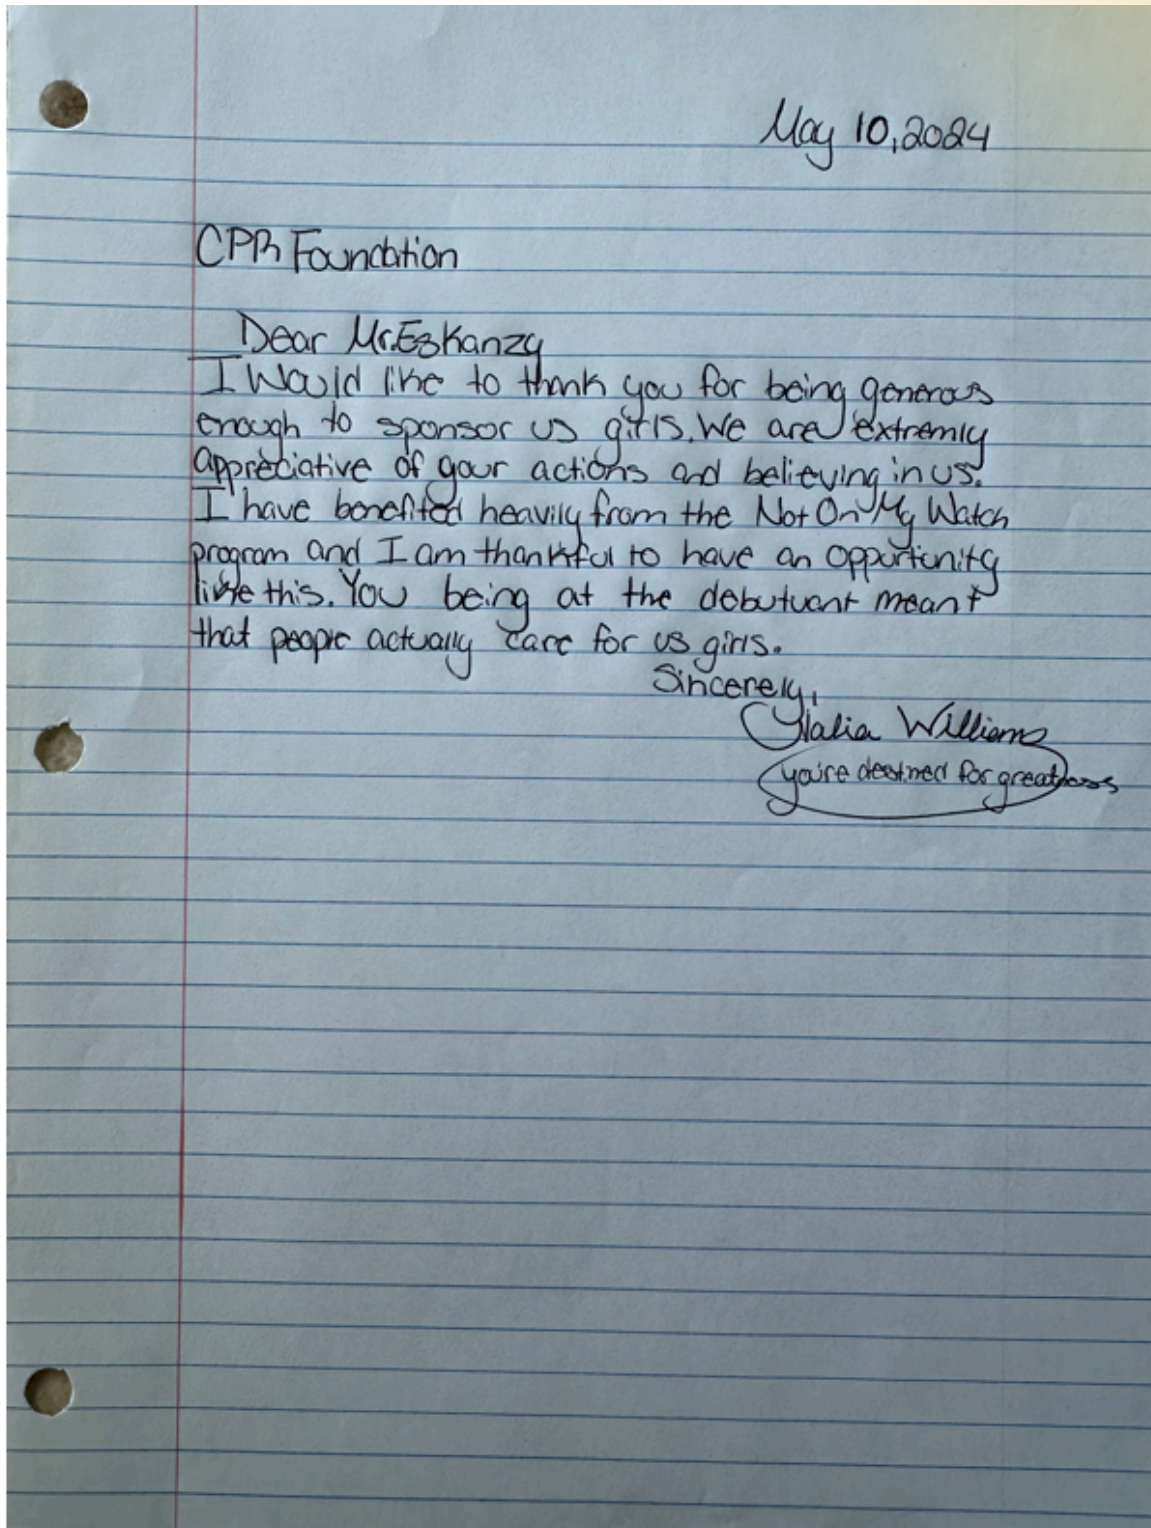 May 10, 2024
CPR Foundation
Dear Mr. Eskanzy
I Would like to thank you for being generous
enough to sponsor us girls. We are extremly
appreciative of your actions and believing in us.
I have benefited heavily from the Not On My Watch
program and I am thankful to have an opportunity
like this. You being at the debutuant meant
that people actually care for us girls.
Sincerely,
Williams
you're destined for greatness